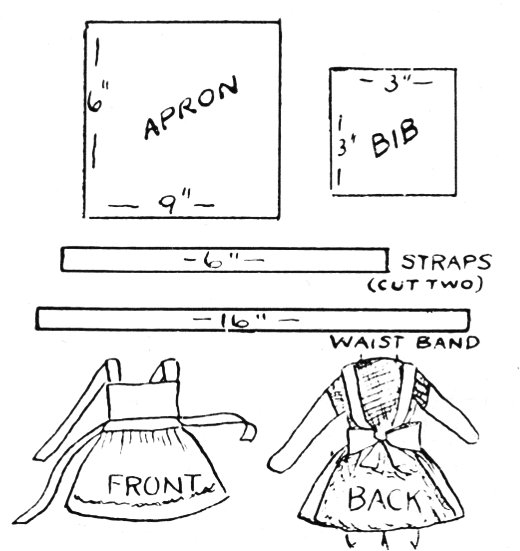 6"
APRON
9"
3"
3"
BIB
6"
STRAPS
(CUT TWO)
16"
WAIST BAND
FRONT
BACK